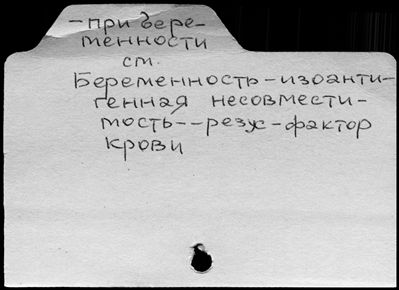 -при бере-
менности
см.
Беременность-изоанти-
генная несовмести-
мость--резус-фактор
крови